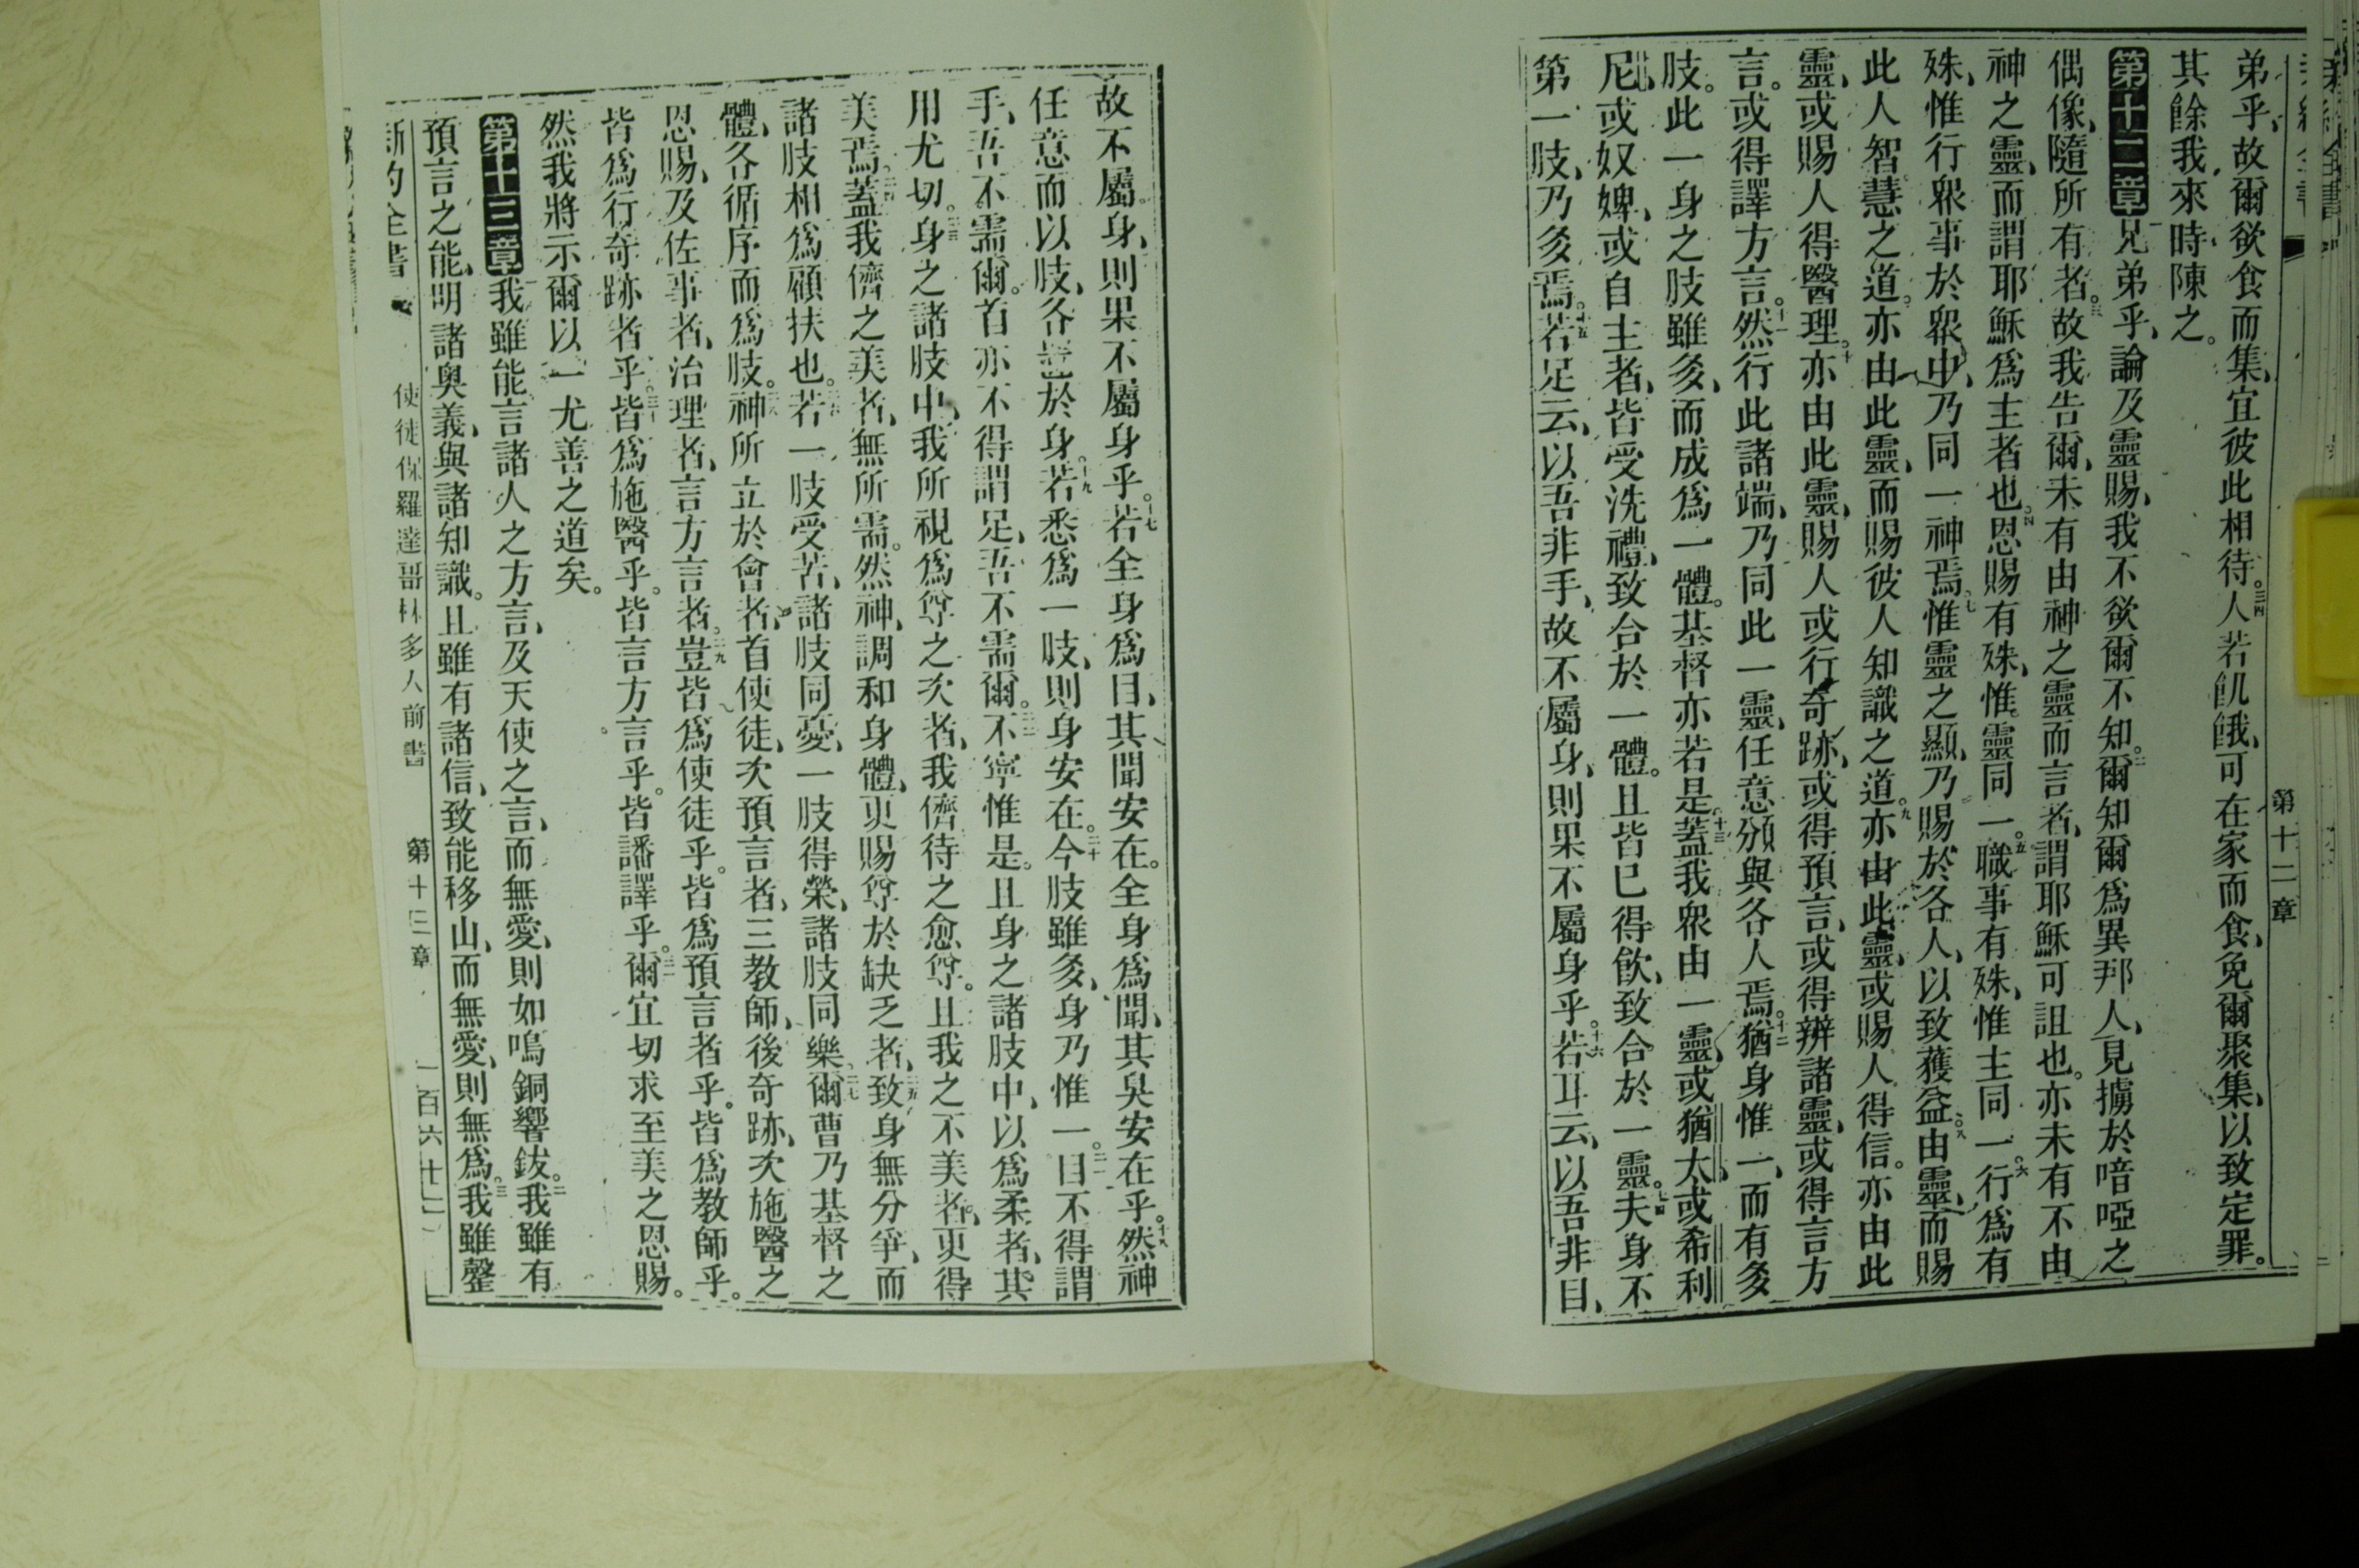 第十二章
弟乎、故爾欲食而集、宜彼此相待。三四人若飢餓、可在家而食、免爾聚集、以致定罪。
其餘我來時陳之。
第十二章 一兄弟乎、論及靈賜、我不欲爾不知。二爾知爾爲異邦人、見擄於喑啞之
偶像、隨所有者。三故我告爾、未有由神之靈而言者、謂耶穌可詛也。亦未有不由
神之靈、而謂耶穌爲主者也。四恩賜有殊、惟靈同一。五職事有殊、惟主同一。六行爲有
殊、惟行衆事於衆中、乃同一神焉。七惟靈之顯、乃賜於各人、以致獲益。八由靈、而賜
此人智慧之道。亦由此靈、而賜彼人知識之道。九亦由此靈、或賜人得信。亦由此
靈、或賜人得醫理。十亦由此靈、賜人或行奇跡、或得預言、或得辨諸靈、或得言方
言。或得譯方言。十一然行此諸端、乃同此一靈、任意頒與各人焉。十二猶身惟一、而有多
肢。此一身之肢雖多、而成爲一體。基督亦若是。十三蓋我衆由一靈、或猶太、或希利
尼、或奴婢、或自主者、皆受洗禮、致合於一體。且皆已得飲、致合於一靈。十四夫身不
第一肢、乃多焉。十五若足云、以吾非手、故不屬身、則果不屬身乎。十六若耳云、以吾非目、
故不屬身、則果不屬身乎。十七若全身爲目、其聞安在。全身爲聞、其臭安在乎。十八然神
任意而以肢、各置於身。十九若悉爲一肢、則身安在。二十今肢雖多、身乃惟一。二一目不得謂
手、吾不需爾。首亦不得謂足、吾不需爾。二二不寧惟是。且身之諸肢中、以爲柔者、其
用尤切。二三身之諸肢中、我所視爲尊之次者、我儕待之愈尊。且我之不美者、更得
美焉。二四蓋我儕之美者、無所需。然神、調和身體、更賜尊於缺乏者、二五致身無分爭、而
諸肢相爲顧扶也。二六若一肢受苦、諸肢同憂、一肢得榮、諸肢同樂。二七爾曹乃基督之
體、各循序而爲肢。二八神所立於會者、首使徒、次預言者、三教師、後奇跡、次施醫之
恩賜、及佐事者、治理者、言方言者。二九豈皆爲使徒乎。皆爲預言者乎。皆爲教師乎。
皆爲行奇跡者乎。三十皆爲施醫乎。皆言方言乎。皆譒譯乎。三一爾宜切求至美之恩賜。
然我將示爾以一尤善之道矣。
第十三章 一我雖能言諸人之方言、及天使之言、而無愛、則如鳴銅響鈸。二我雖有
預言之能、明諸奧義、與諸知識。且雖有諸信、致能移山、而無愛、則無爲。三我雖罄
新約全書 使徒保羅達哥林多人前書 第十三章 一百六十二